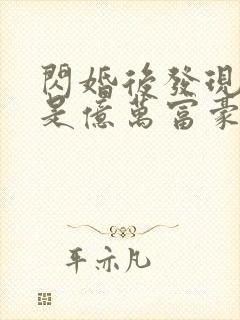 閃婚後發現
是億萬富豪
平亦凡